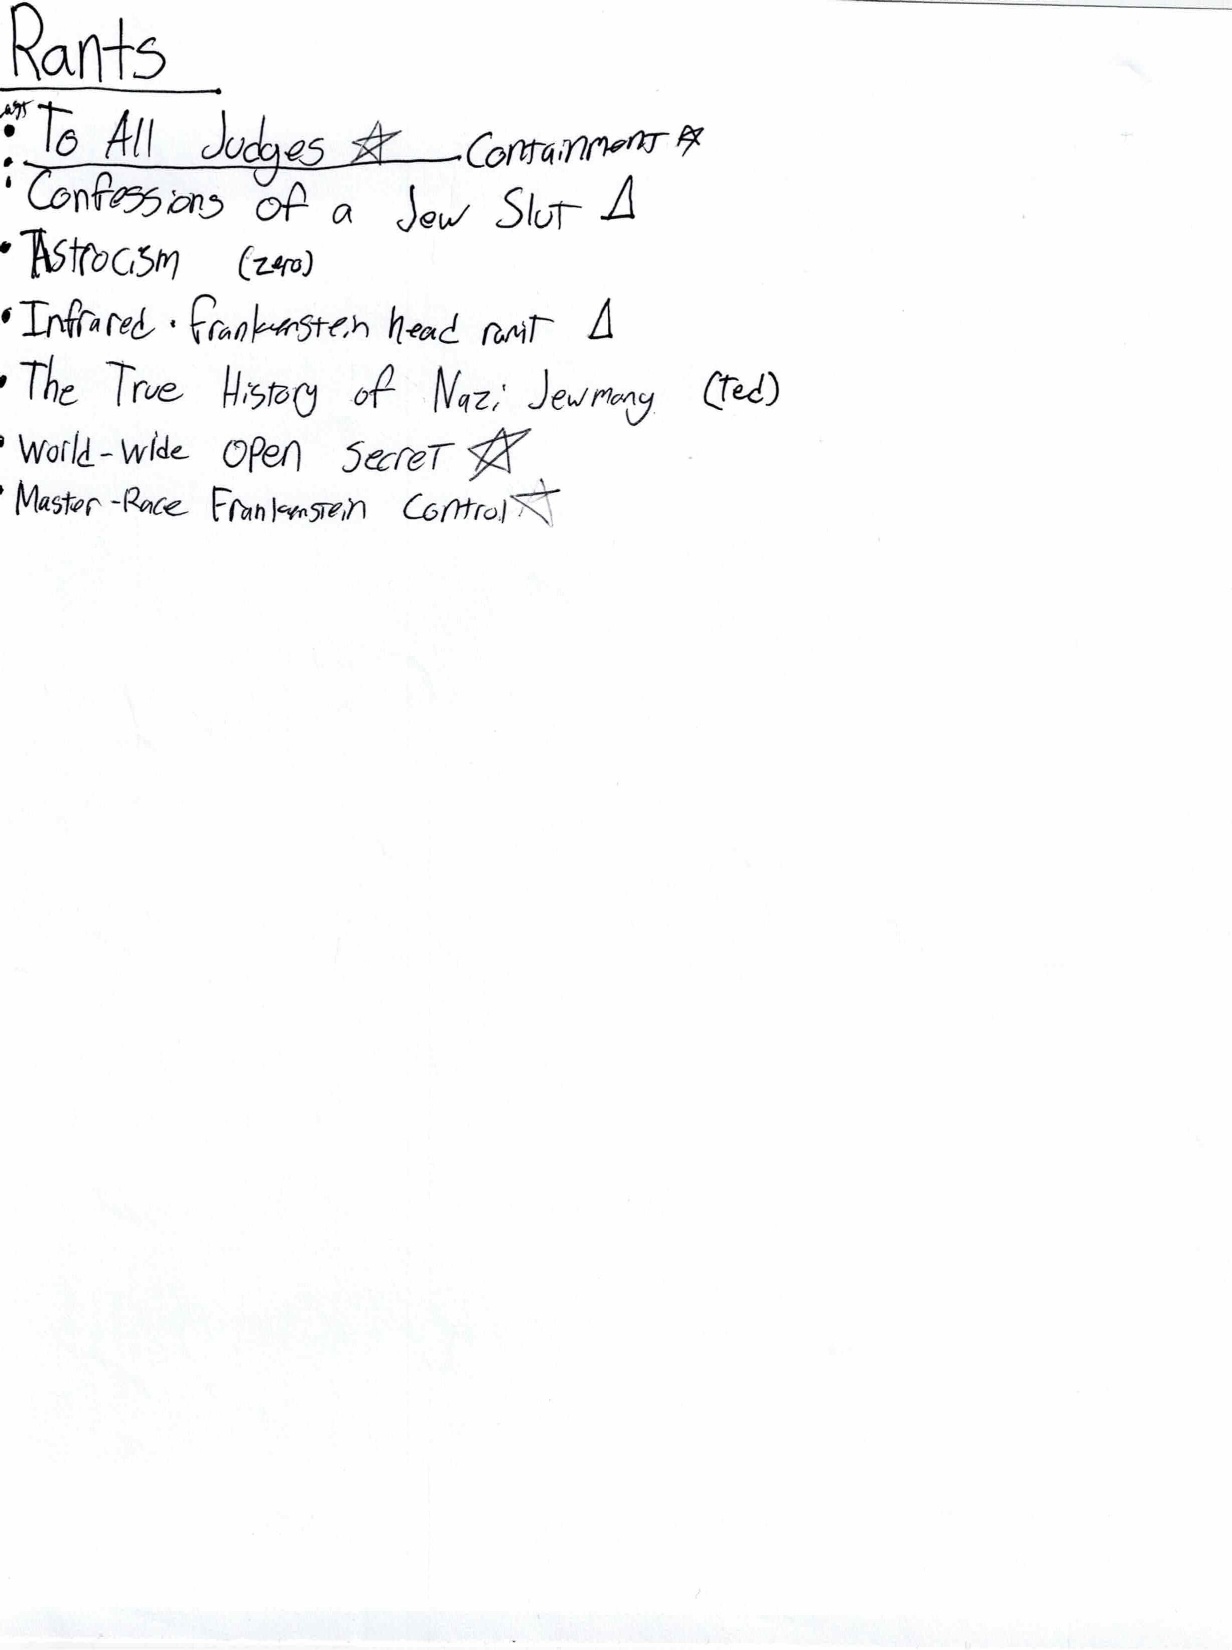 Rants
To All Judges ☆ Containment ☆
Confessions of a Jew Slut Δ
Astrocism (zero)
Infrared · Frankenstein head rant Δ
The True History of Nazi Jewmany (Ted)
World-Wide Open Secret ☆
Master-Race Frankenstein Control ☆